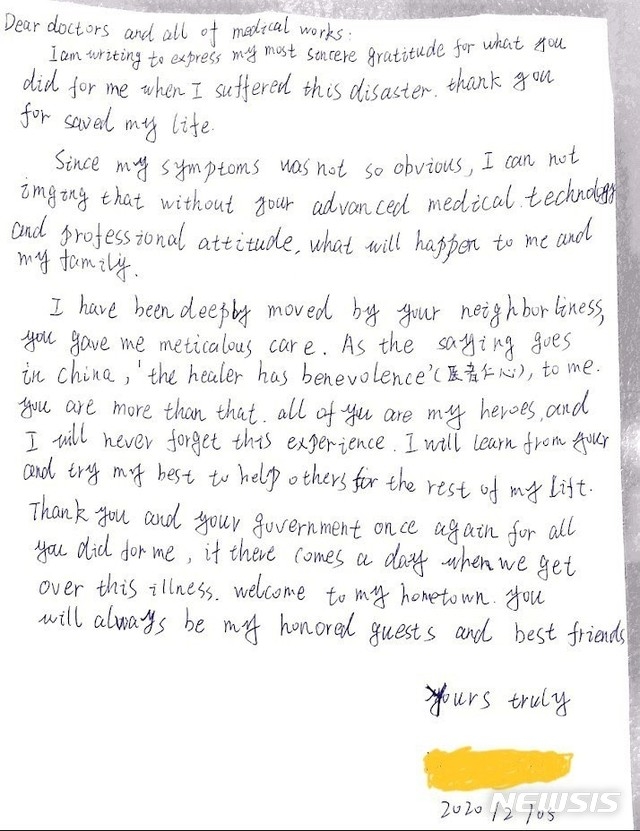 Dear doctors and all of medical works:
I am writing to express my most sincere gratitude for what you
did for me when I suffered this disaster. thank you
for saved my life.
Since my symptoms was not so obvious, I can not
imging that without your advanced medical technology
and professional attitude, what will happen to me and
my family.
I have been deeply moved by your neighborliness,
you gave me meticalous care. As the saying goes
in China, 'the healer has benevolence'(医者仁心), to me.
you are more than that. all of you are my heroes, and
I will never forget this experience. I will learn from your
and try my best to help others for the rest of my lift.
Thank you and your government once again for all
you did for me, if there comes a day when we get
over this illness. welcome to my hometown. you
will always be my honored guests and best friends
yours truly
2020/2/05
NEWSIS